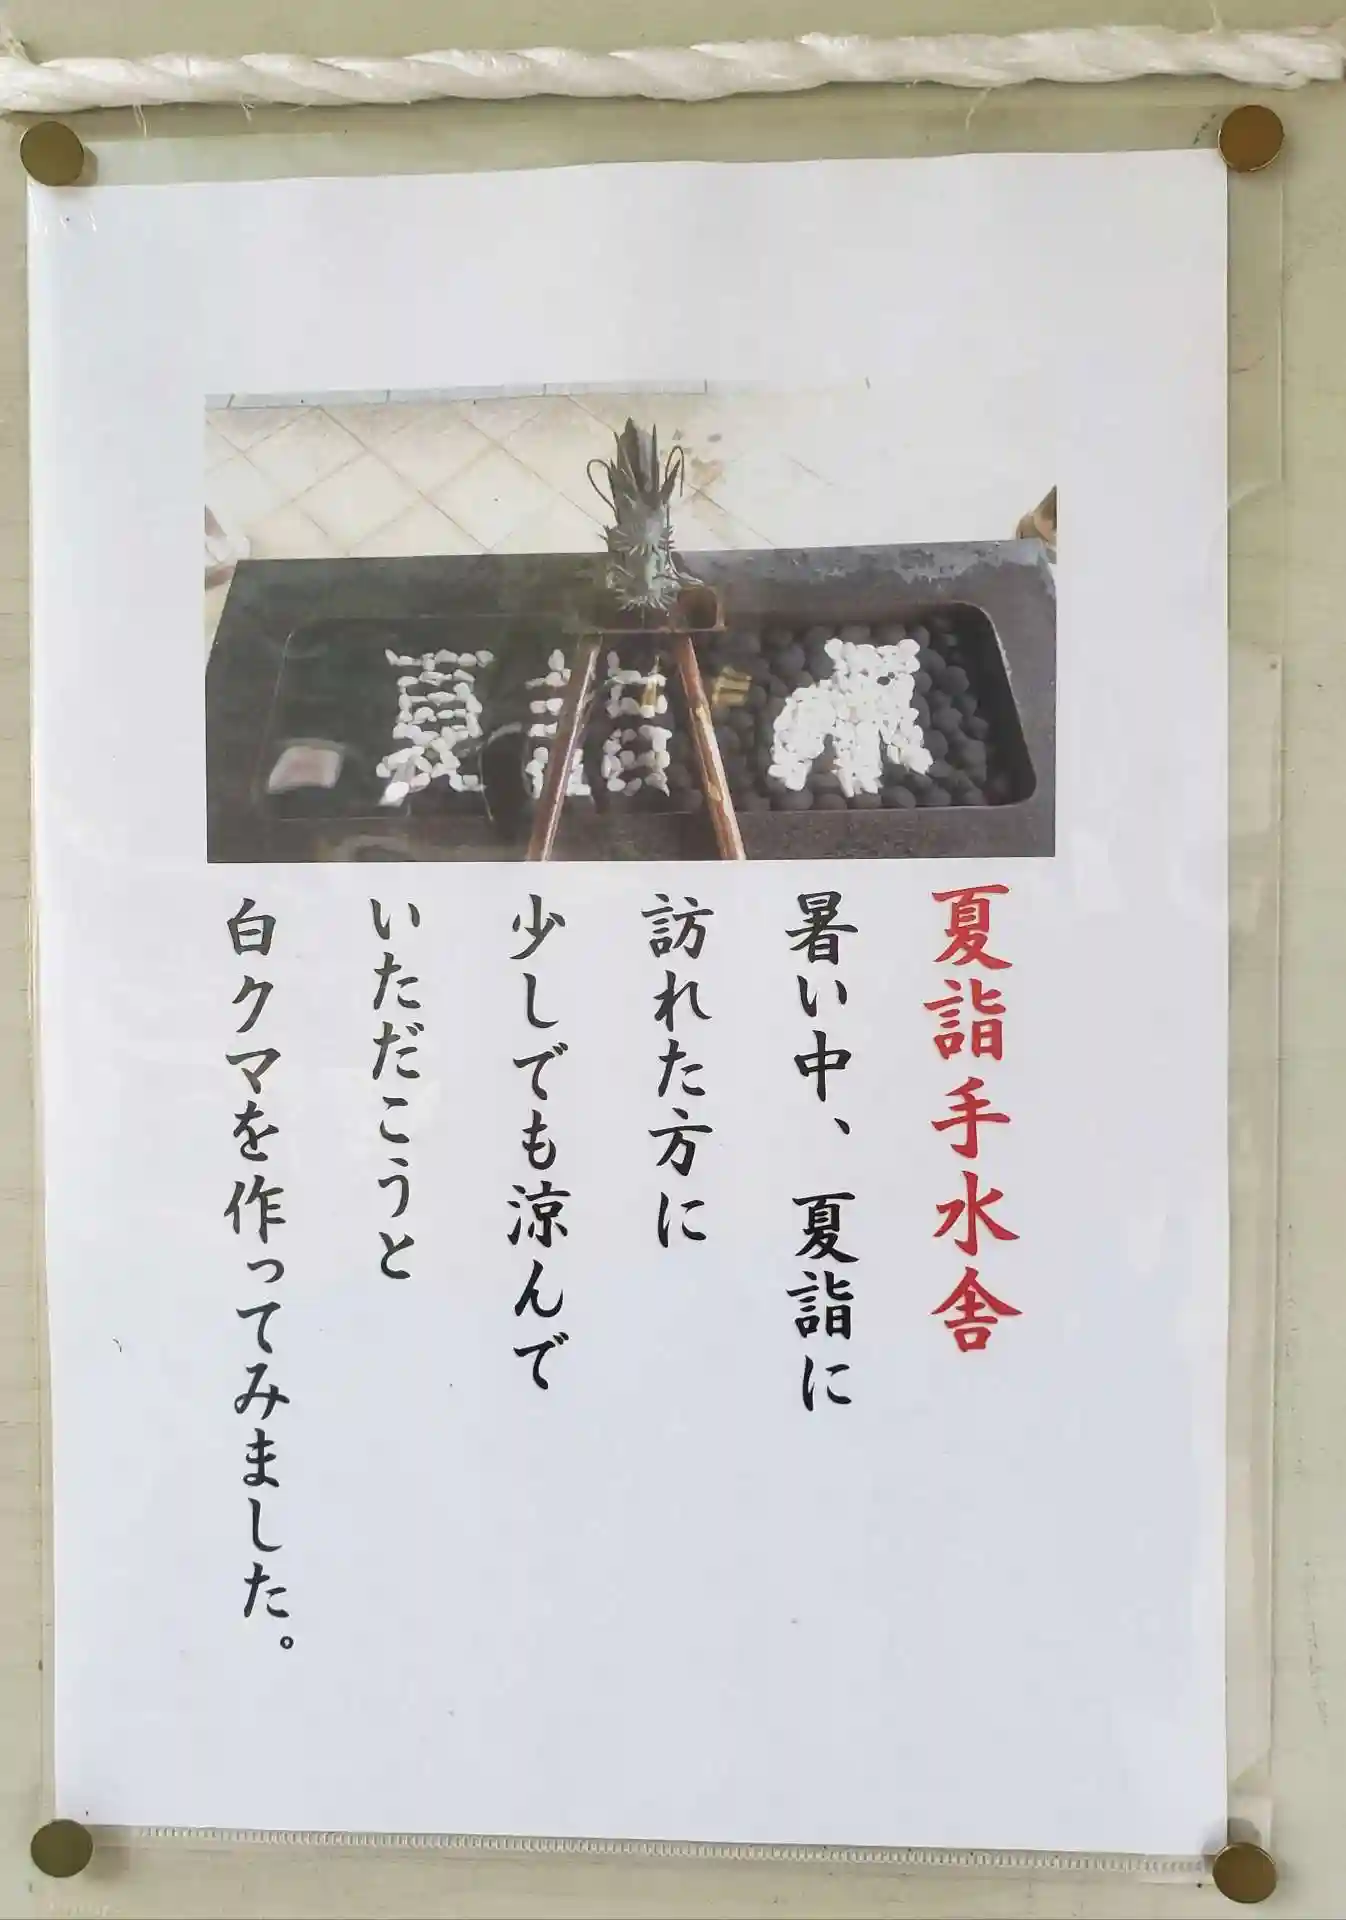 夏詣
夏詣手水舎
暑い中、夏詣に
訪れた方に
少しでも涼んで
いただこうと
白クマを作ってみました。